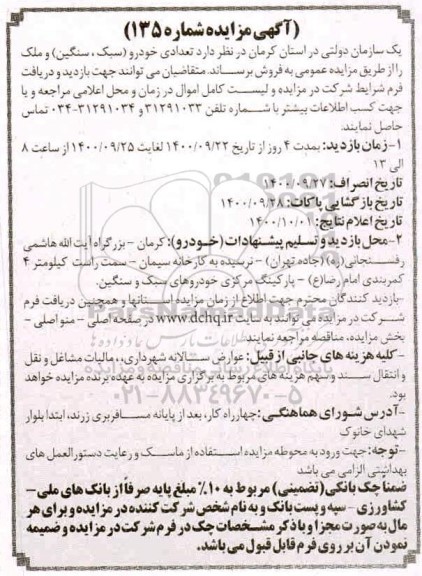 (آگهی مزایده شماره ۱۳۵)
یک سازمان دولتی در استان کرمان در نظر دارد تعدادی خودرو (سبک ، سنگین) و ملک
را از طریق مزایده عمومی به فروش برساند. متقاضیان می توانند جهت بازدید و دریافت
فرم شرایط شرکت در مزایده و لیست کامل اموال در زمان و محل اعلامی مراجعه و یا
جهت کسب اطلاعات بیشتر با شماره تلفن ۳۱۲۹۱۰۳۳ و ۳۱۲۹۱۰۳۴-۰۳۴ تماس
حاصل نمایند.
۱-زمان بازدید: بمدت ۴ روز از تاریخ ۱۴۰۰/۰۹/۲۲ لغایت ۱۴۰۰/۰۹/۲۵ از ساعت ۸
الی ۱۳
تاریخ انصراف: ۱۴۰۰/۰۹/۲۷
تاریخ بازگشایی پاکات: ۱۴۰۰/۰۹/۲۸
تاریخ اعلام نتایج: ۱۴۰۰/۱۰/۰۱
۲-محل بازدید و تسلیم پیشنهادات (خودرو): کرمان - بزرگراه آیت الله هاشمی
رفسنجانی(ره) (جاده تهران) - نرسیده به کارخانه سیمان - سمت راست کیلومتر ۴
کمربندی امام رضا(ع) - پارکینگ مرکزی خودروهای سبک و سنگین.
-بازدید کنندگان محترم جهت اطلاع از زمان مزایده استانها و همچنین دریافت فرم
شرکت در مزایده می توانند به سایت www.dchq.ir در صفحه اصلی - منو اصلی -
بخش مزایده، مناقصه مراجعه نمایند.
-کلیه هزینه های جانبی از قبیل: عوارض سالانه شهرداری، مالیات مشاغل و نقل
و انتقال سند و سهم هزینه های مربوط به برگزاری مزایده به عهده برنده مزایده خواهد
بود.
-آدرس شورای هماهنگی: چهارراه کار، بعد از پایانه مسافربری زرند، ابتدا بلوار
شهدای خانوک
-توجه: جهت ورود به محوطه مزایده استفاده از ماسک و رعایت دستورالعمل های
بهداشتی الزامی می باشد
ضمناً چک بانکی (تضمینی) مربوط به ۱۰٪ مبلغ پایه صرفاً از بانک های ملی-
کشاورزی - سپه و پست بانک و به نام شخص شرکت کننده در مزایده و برای هر
مال به صورت مجزا و با ذکر مشخصات چک در فرم شرکت در مزایده و ضمیمه
نمودن آن بر روی فرم قابل قبول می باشد.
۰۲۱-۸۸۳۴۹۶۷۰-۵